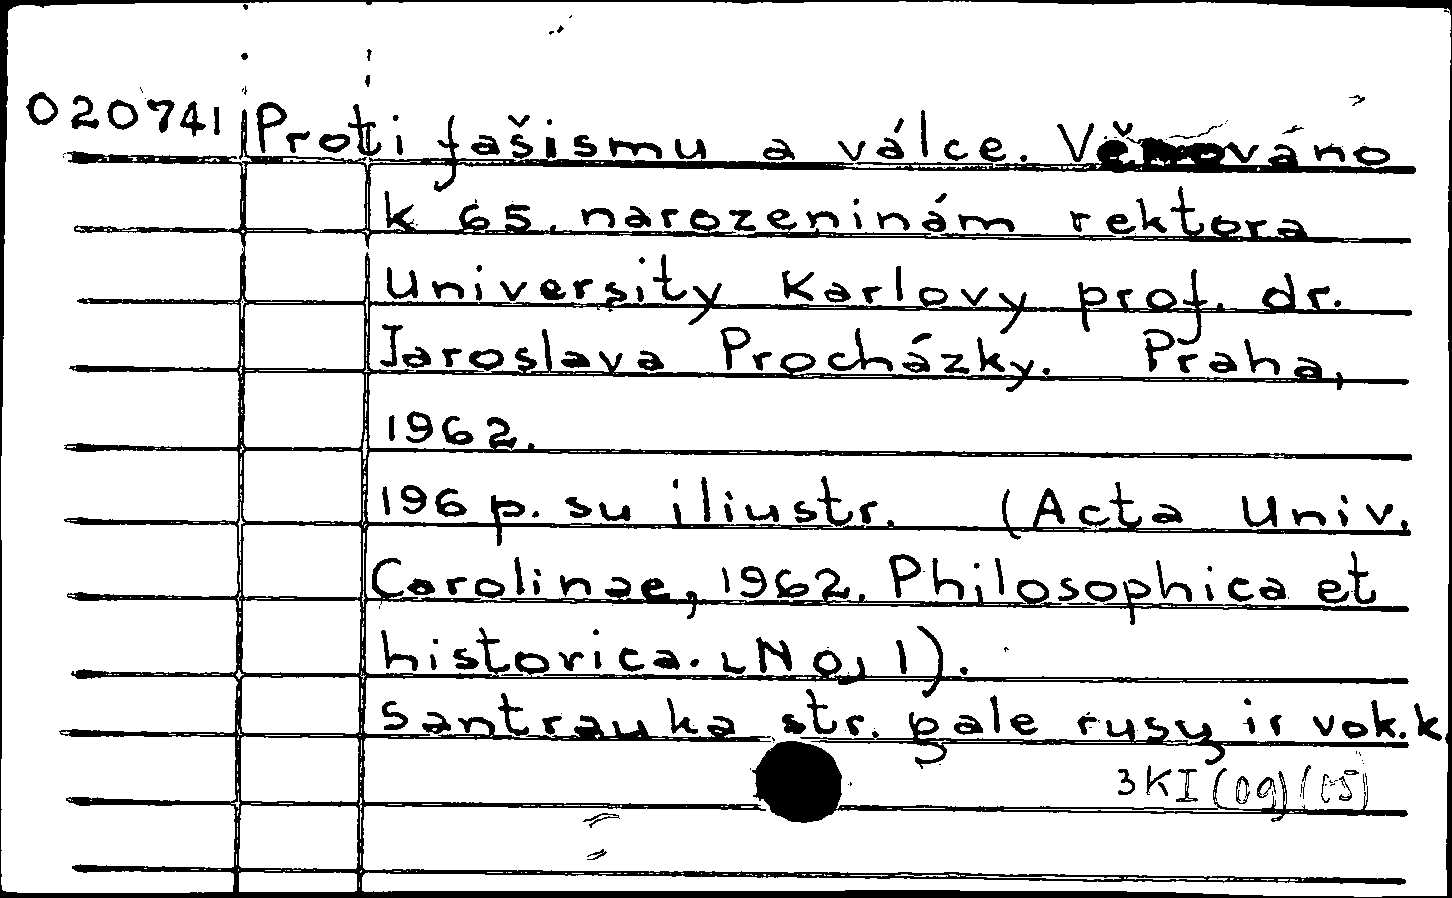 020741 Proti fašismu a válce. Věnováno
k 65. narozeninám rektora
University Karlovy prof. dr.
Jaroslava Procházky. Praha,
1962.
196 p. su iliustr. (Acta Univ.
Carolinae, 1962. Philosophica et
historica. No, 1).
Santrauka str. gale rusų ir vok. k
3KI(09)(05)